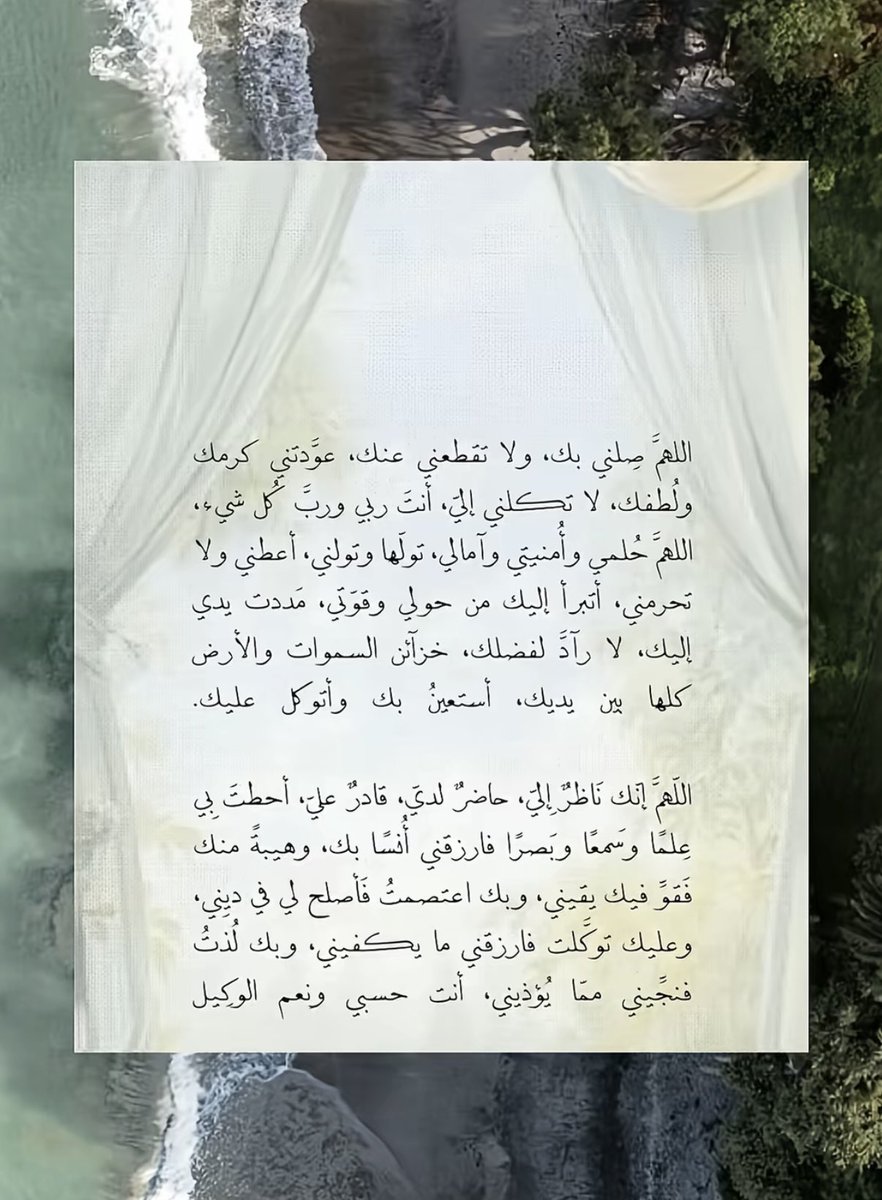 اللهمَّ صِلني بك، ولا تقطعني عنك، عوَّدتني كرمك
ولُطفك، لا تكلني إليّ، أنتَ ربي وربَّ كُل شيء،
اللهمَّ حُلمي وأُمنيتي وآمالي، تولَها وتولني، أعطني ولا
تحرمني، أتبرأ إليك من حولي وقوَتي، مَددت يدي
إليك، لا رآدَّ لفضلك، خزآئن السموات والأرض
كلها بين يديك، أستعينُ بك وأتوكل عليك.
اللَهمَّ إنَك نَاظرٌ إِليّ، حاضرٌ لديّ، قادرٌ عليّ، أحطتَ بِي
عِلمًا وسَمعًا وبَصرًا فارزقني أُنسًا بك، وهيبةً منك
فَقوِّ فيك يقيني، وبك اعتصمتُ فَأصلح لي في دِيني،
وعليك توكَّلت فارزقني ما يكفيني، وبك لُذتُ
فنجِّيني ممّا يُؤذيني، أنت حسبي ونِعم الوكِيل